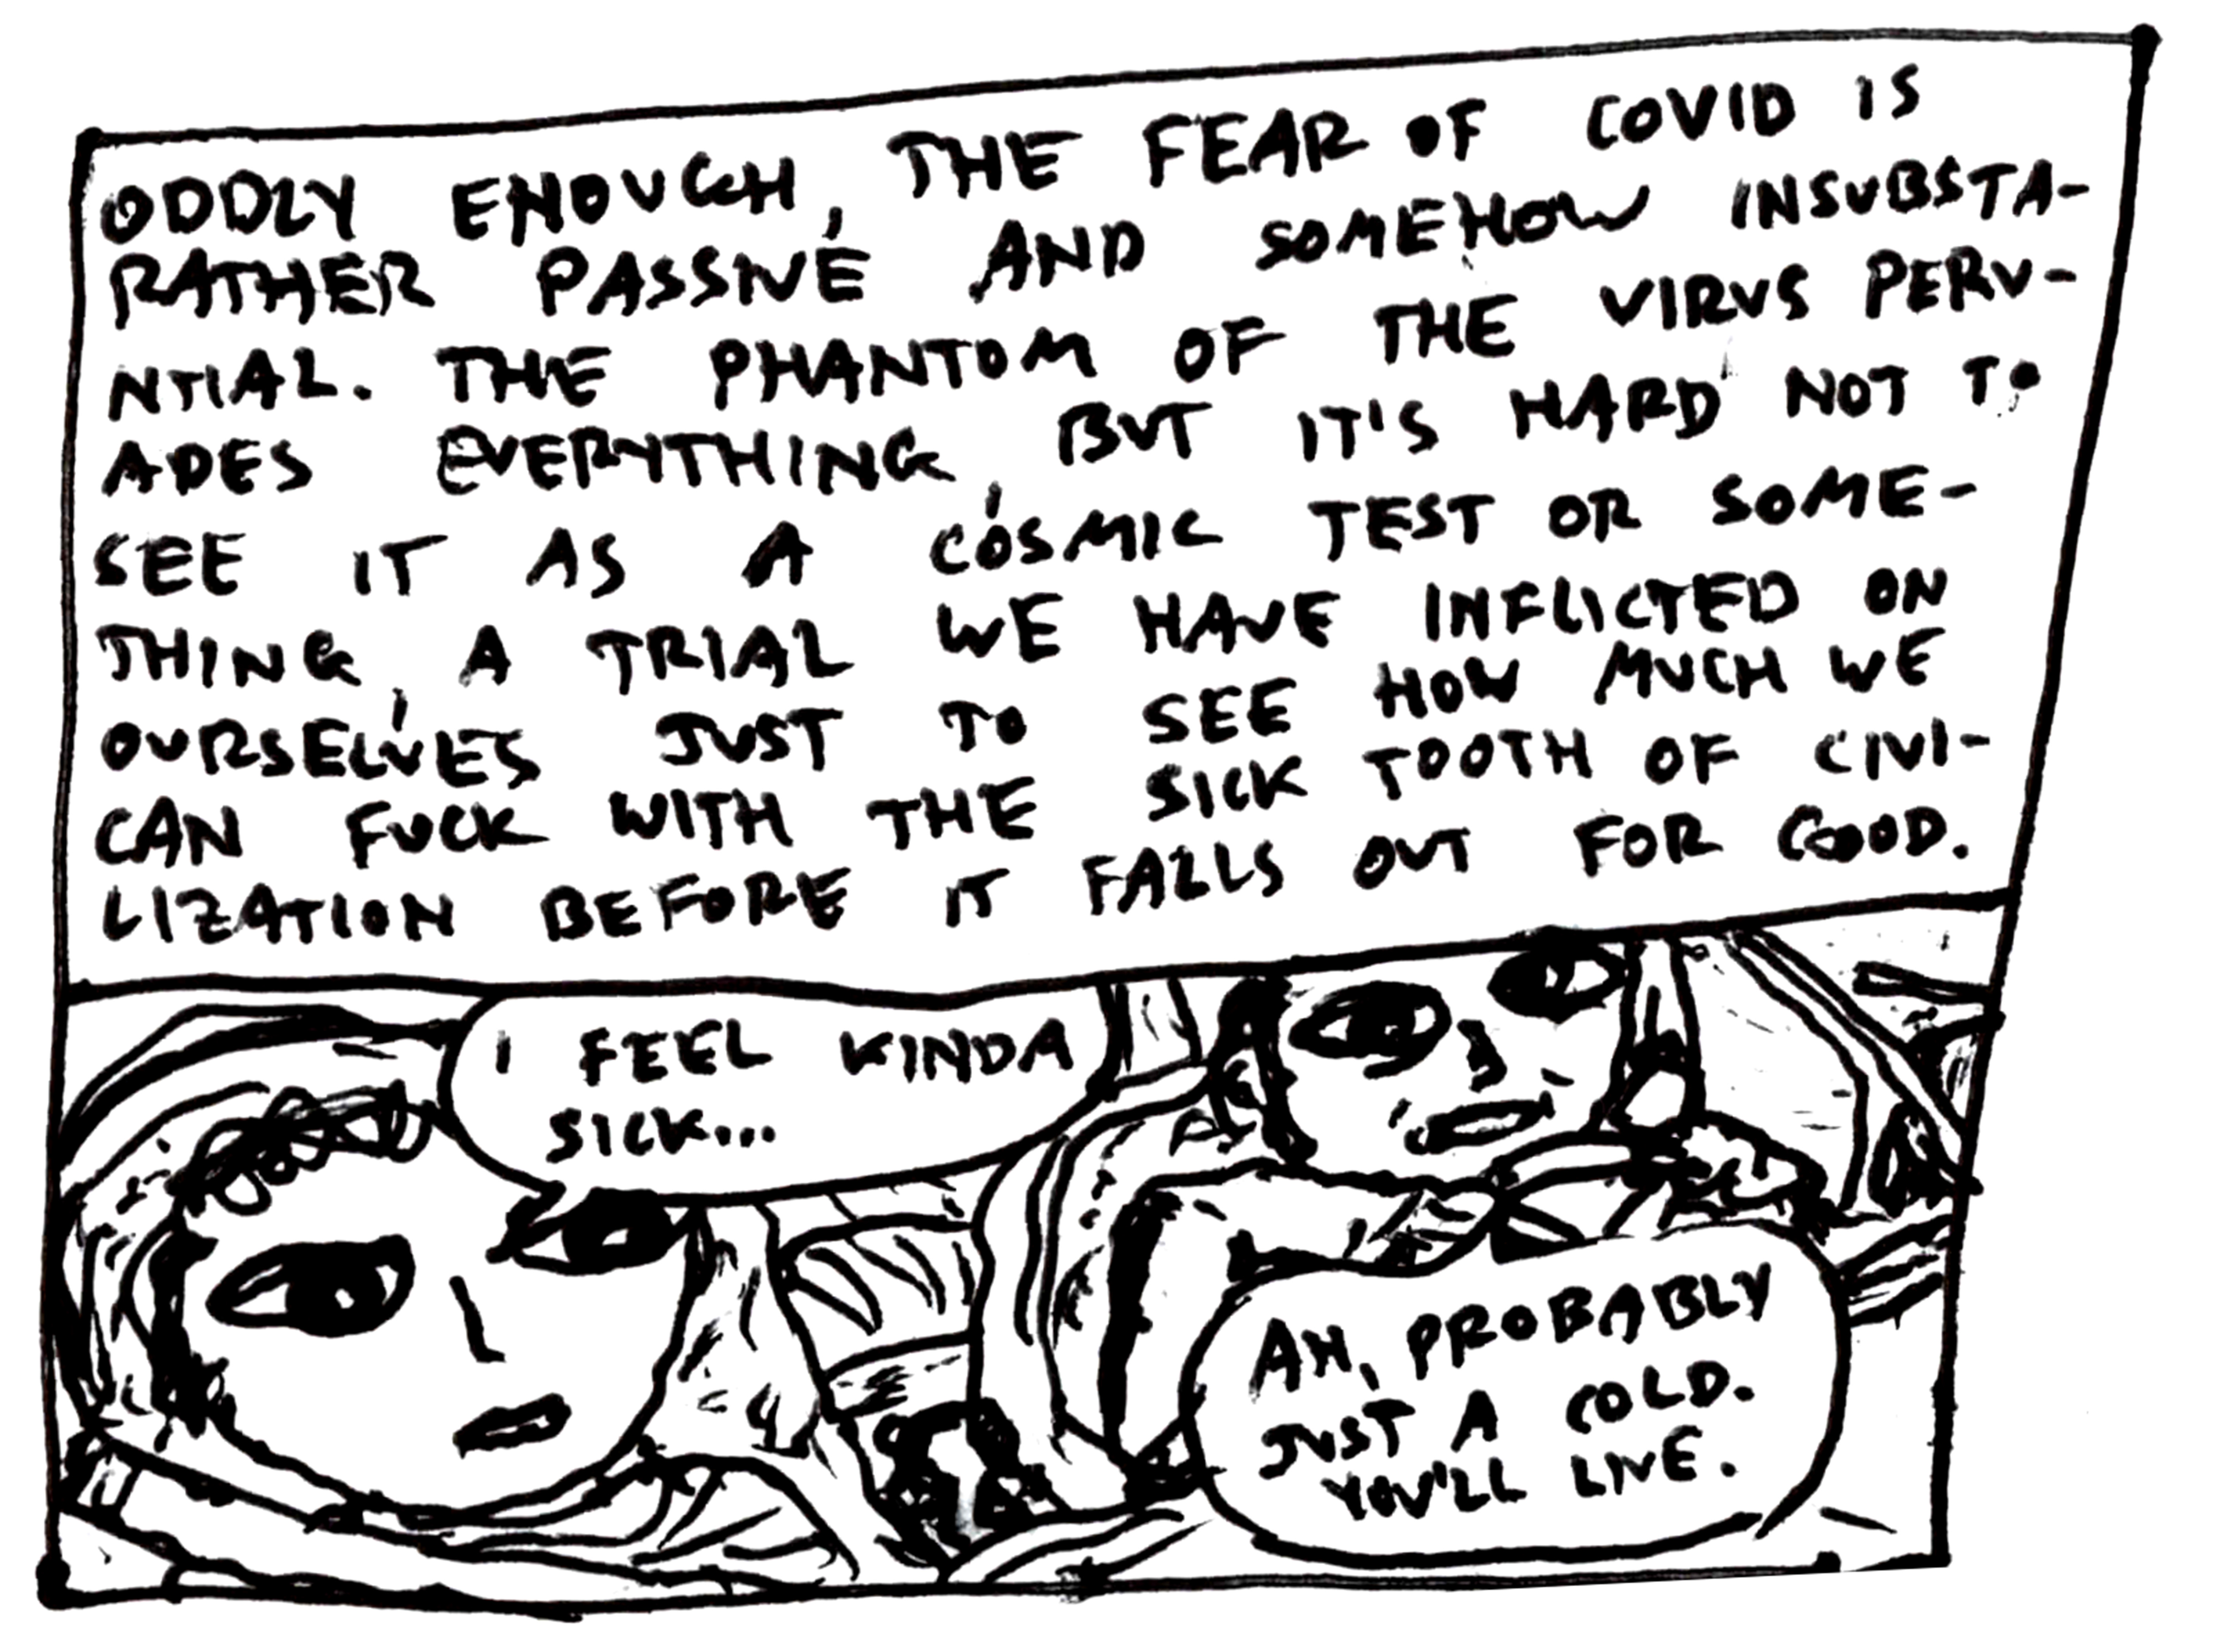 ODDLY ENOUGH, THE FEAR OF COVID IS
RATHER PASSIVE AND SOMEHOW INSUBSTA-
NTIAL. THE PHANTOM OF THE VIRUS PERV-
ADES EVERYTHING, BUT IT'S HARD NOT TO
SEE IT AS A COSMIC TEST OR SOME-
THING, A TRIAL WE HAVE INFLICTED ON
OURSELVES JUST TO SEE HOW MUCH WE
CAN FUCK WITH THE SICK TOOTH OF CIVI-
LIZATION BEFORE IT FALLS OUT FOR GOOD.
I FEEL KINDA
SICK...
AH, PROBABLY
JUST A COLD.
YOU'LL LIVE.